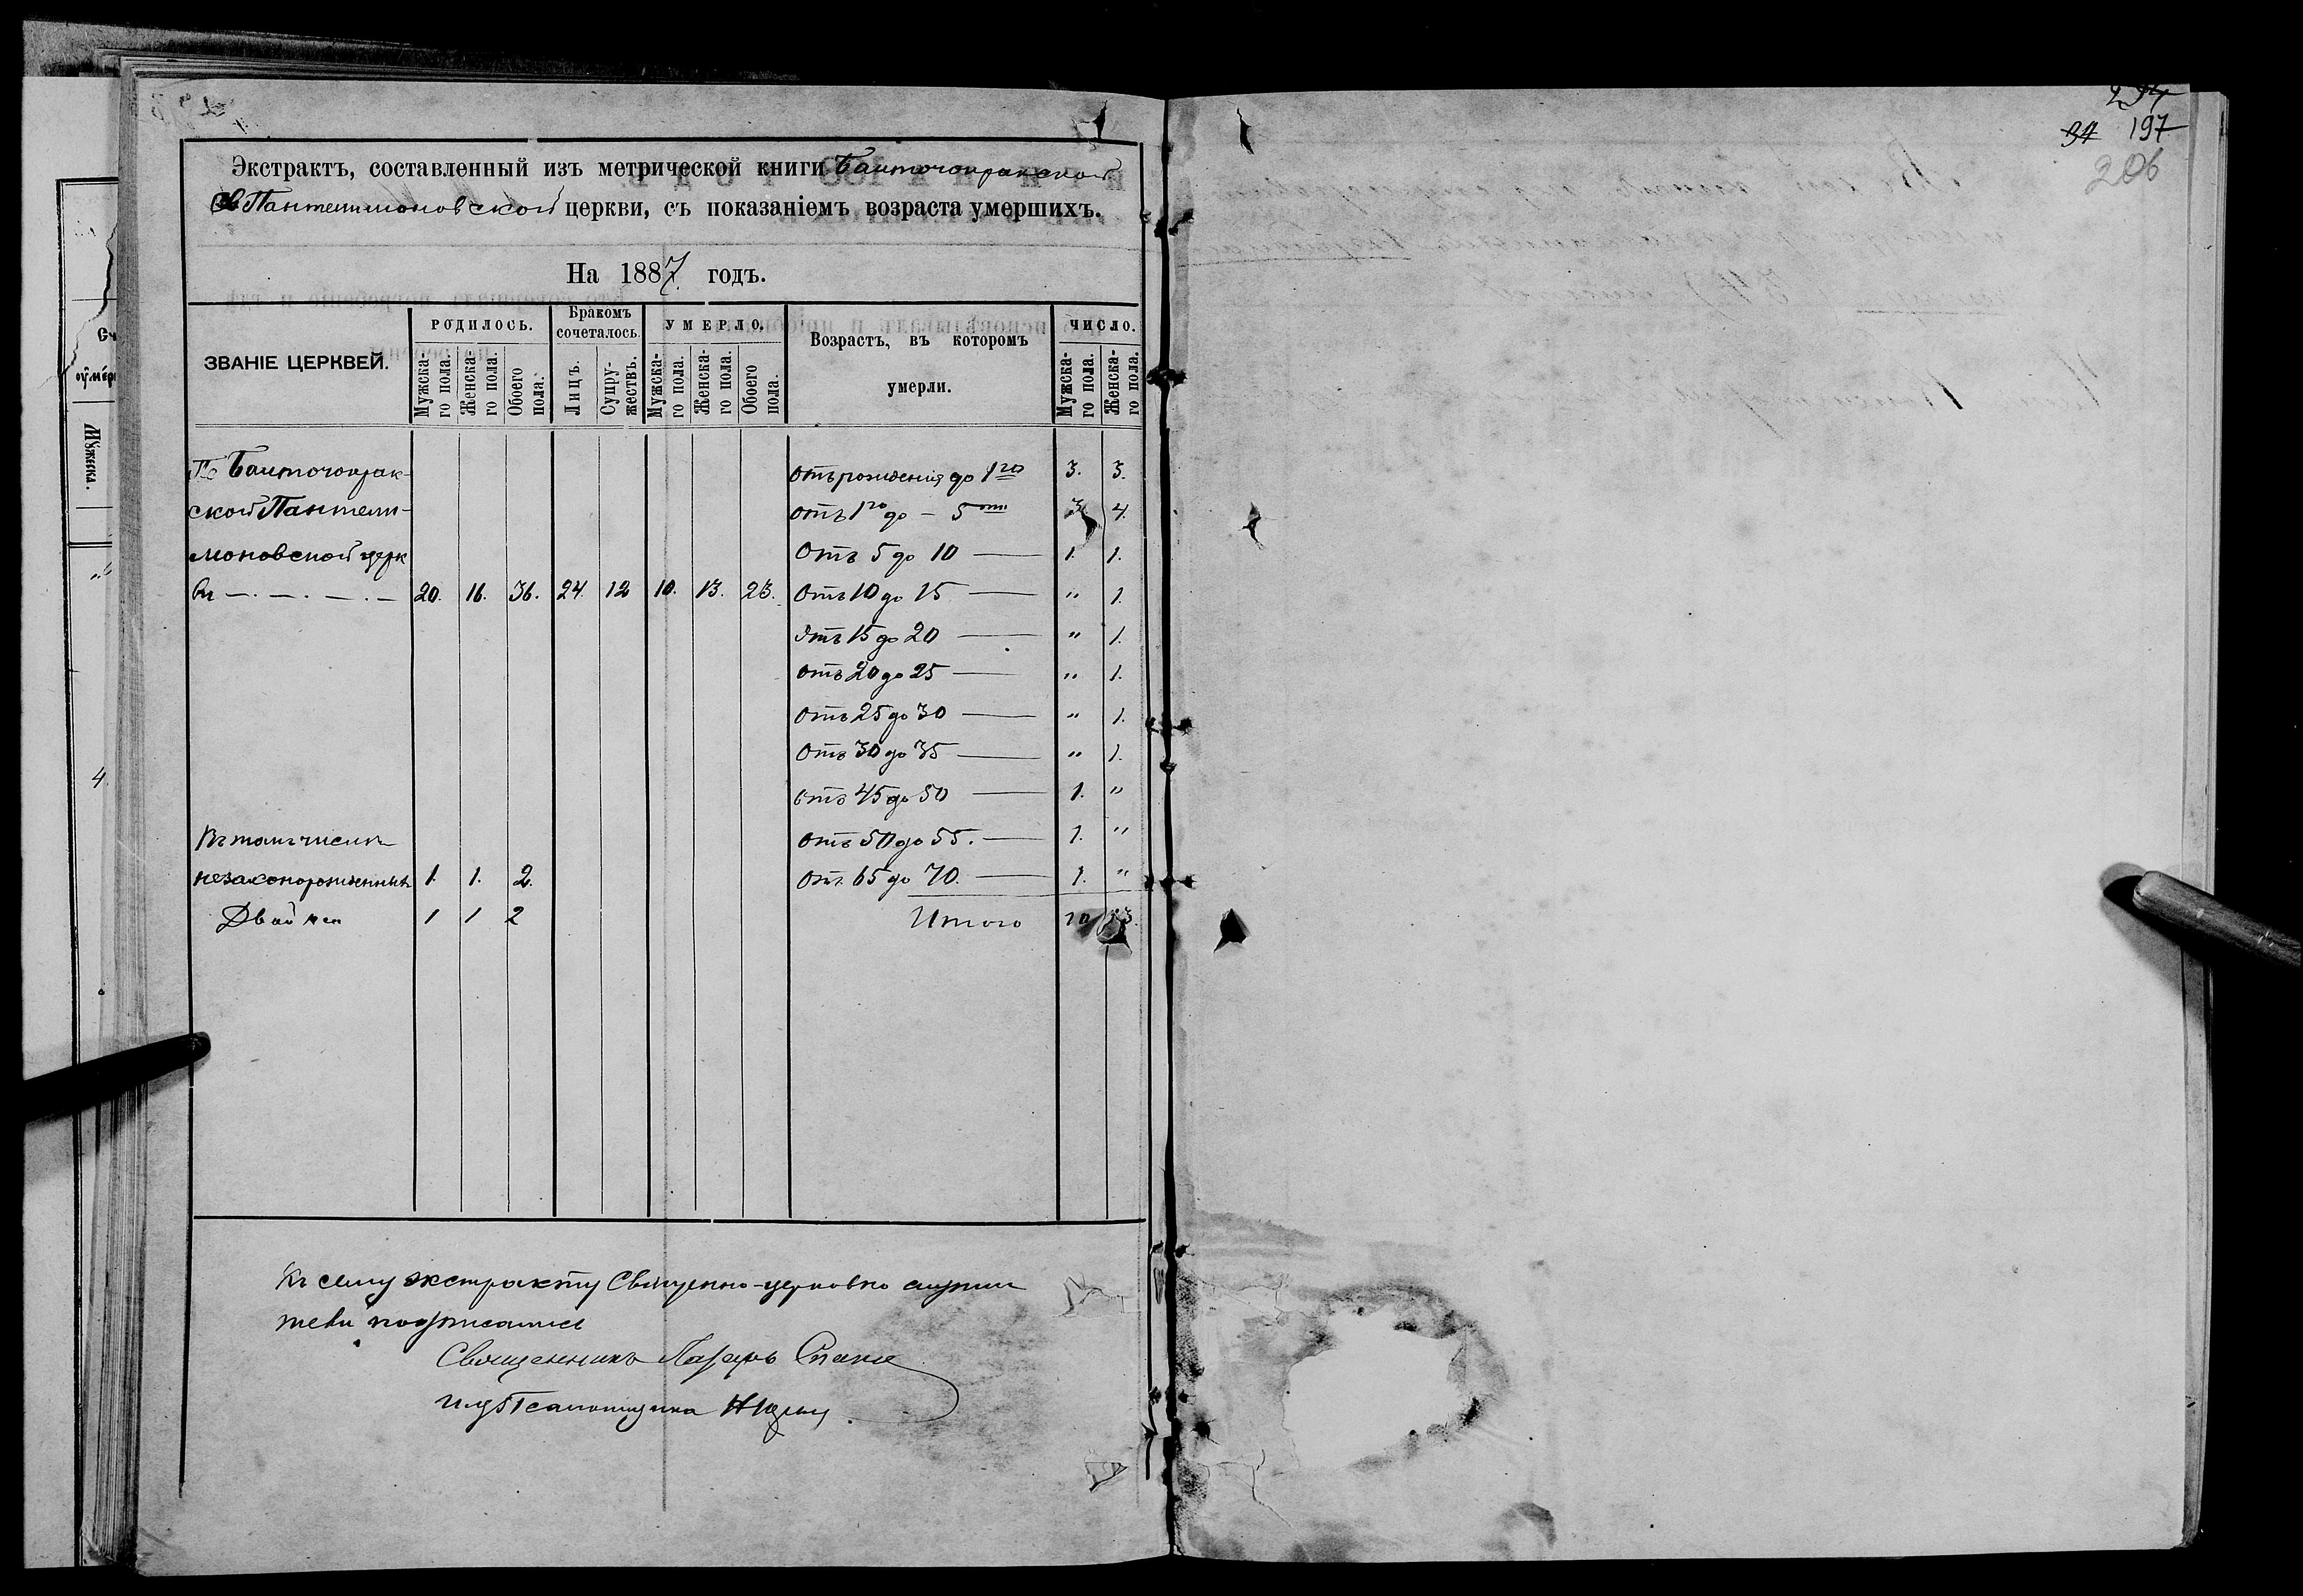 Экстрактъ, составленный изъ метрической книги Баиточокракской
Св Пантелимоновской церкви, съ показаніемъ возраста умершихъ.
На 1887 годъ.
ЗВАНІЕ ЦЕРКВЕЙ.
РОДИЛОСЬ.
Мужска-
го пола.
Женска-
го пола.
Обоего
пола.
Бракомъ
сочеталось.
Лицъ.
Супру-
жествъ.
УМЕРЛО.
Мужска-
го пола.
Женска-
го пола.
Обоего
пола.
Возрастъ, въ которомъ
умерли.
ЧИСЛО.
Мужска-
го пола.
Женска-
го пола.
По Баиточокрак- отъ рожденія до 1го 3. 3.
ской Пантели- отъ 1го до – 5ти 3 4.
моновской церк Отъ 5 до 10 — 1. 1.
ви — . — . — . — 20. 16. 36. 24. 12 10. 13. 23. Отъ 10 до 15 — " 1.
Отъ 15 до 20 — " 1.
отъ 20 до 25 — " 1.
отъ 25 до 30 — " 1.
отъ 30 до 35 — " 1.
отъ 45 до 50 — 1. "
Въ томъ числѣ отъ 50 до 55. — 1. "
незаконорожденныхъ 1. 1. 2. отъ 65 до 70. — 1. "
Двойни 1 1 2 Итого 10 13.
Къ сему экстракту Священно-церковно служи
тели подписались
Священникъ Лазарь
Псаломщика
197
206
34
4.
Мужска.